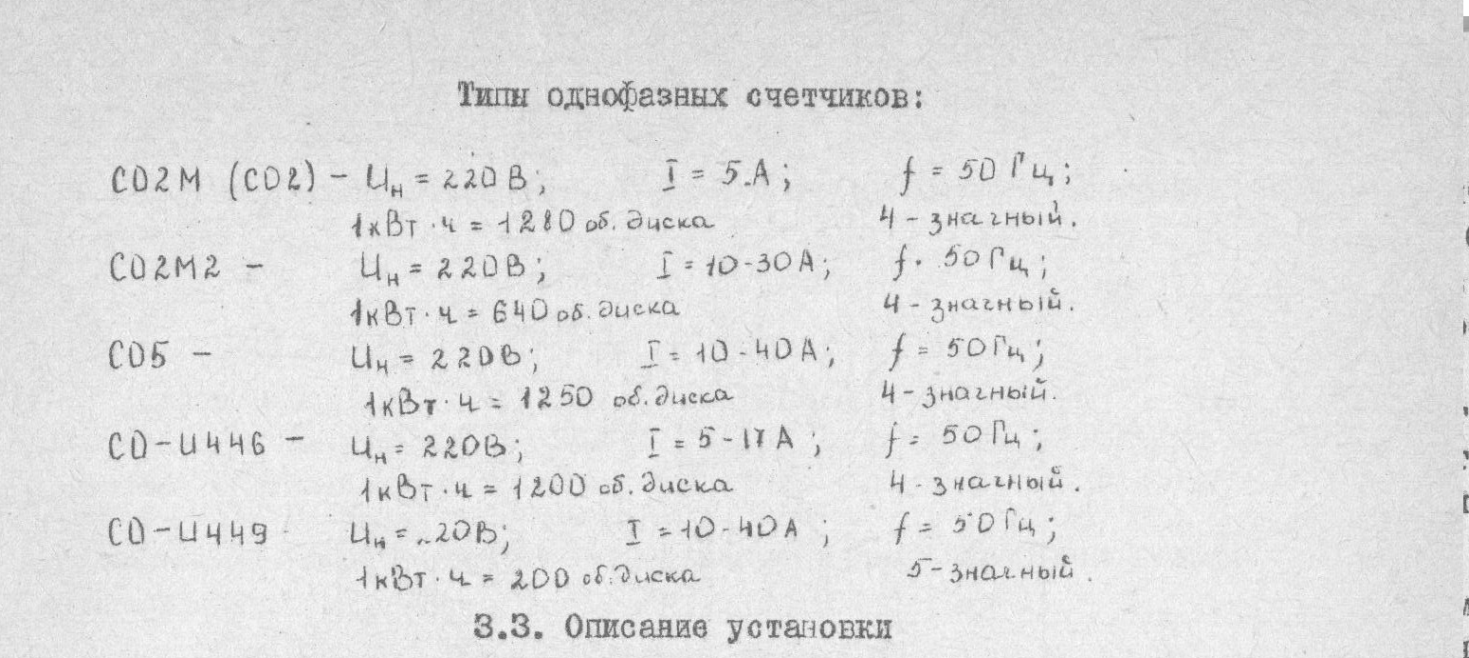 Типы однофазных счетчиков:
СО2М (СО2) – Uн = 220 В; I = 5 А; f = 50 Гц;
1кВт·ч = 1280 об. диска 4 - значный.
СО2М2 – Uн = 220В; I = 10-30 А; f. 50 Гц;
1кВт·ч = 640 об. диска 4 - значный.
СО5 – Uн = 220В; I = 10-40 А; f = 50 Гц;
1кВт·ч = 1250 об. диска 4 - значный.
СО-И446 – Uн = 220В; I = 5-17 А; f = 50 Гц;
1кВт·ч = 1200 об. диска 4 - значный.
СО-И449 - Uн = 20В; I = 10-40 А; f = 50 Гц;
1кВт·ч = 200 об. диска 5 - значный.
3.3. Описание установки